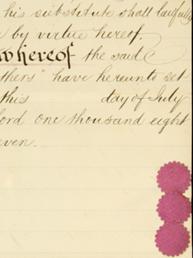 his substitute shall lawfully
by virtue hereof.
whereof the said
thers" have hereunto set
this day of July
ord one thousand eight
even.